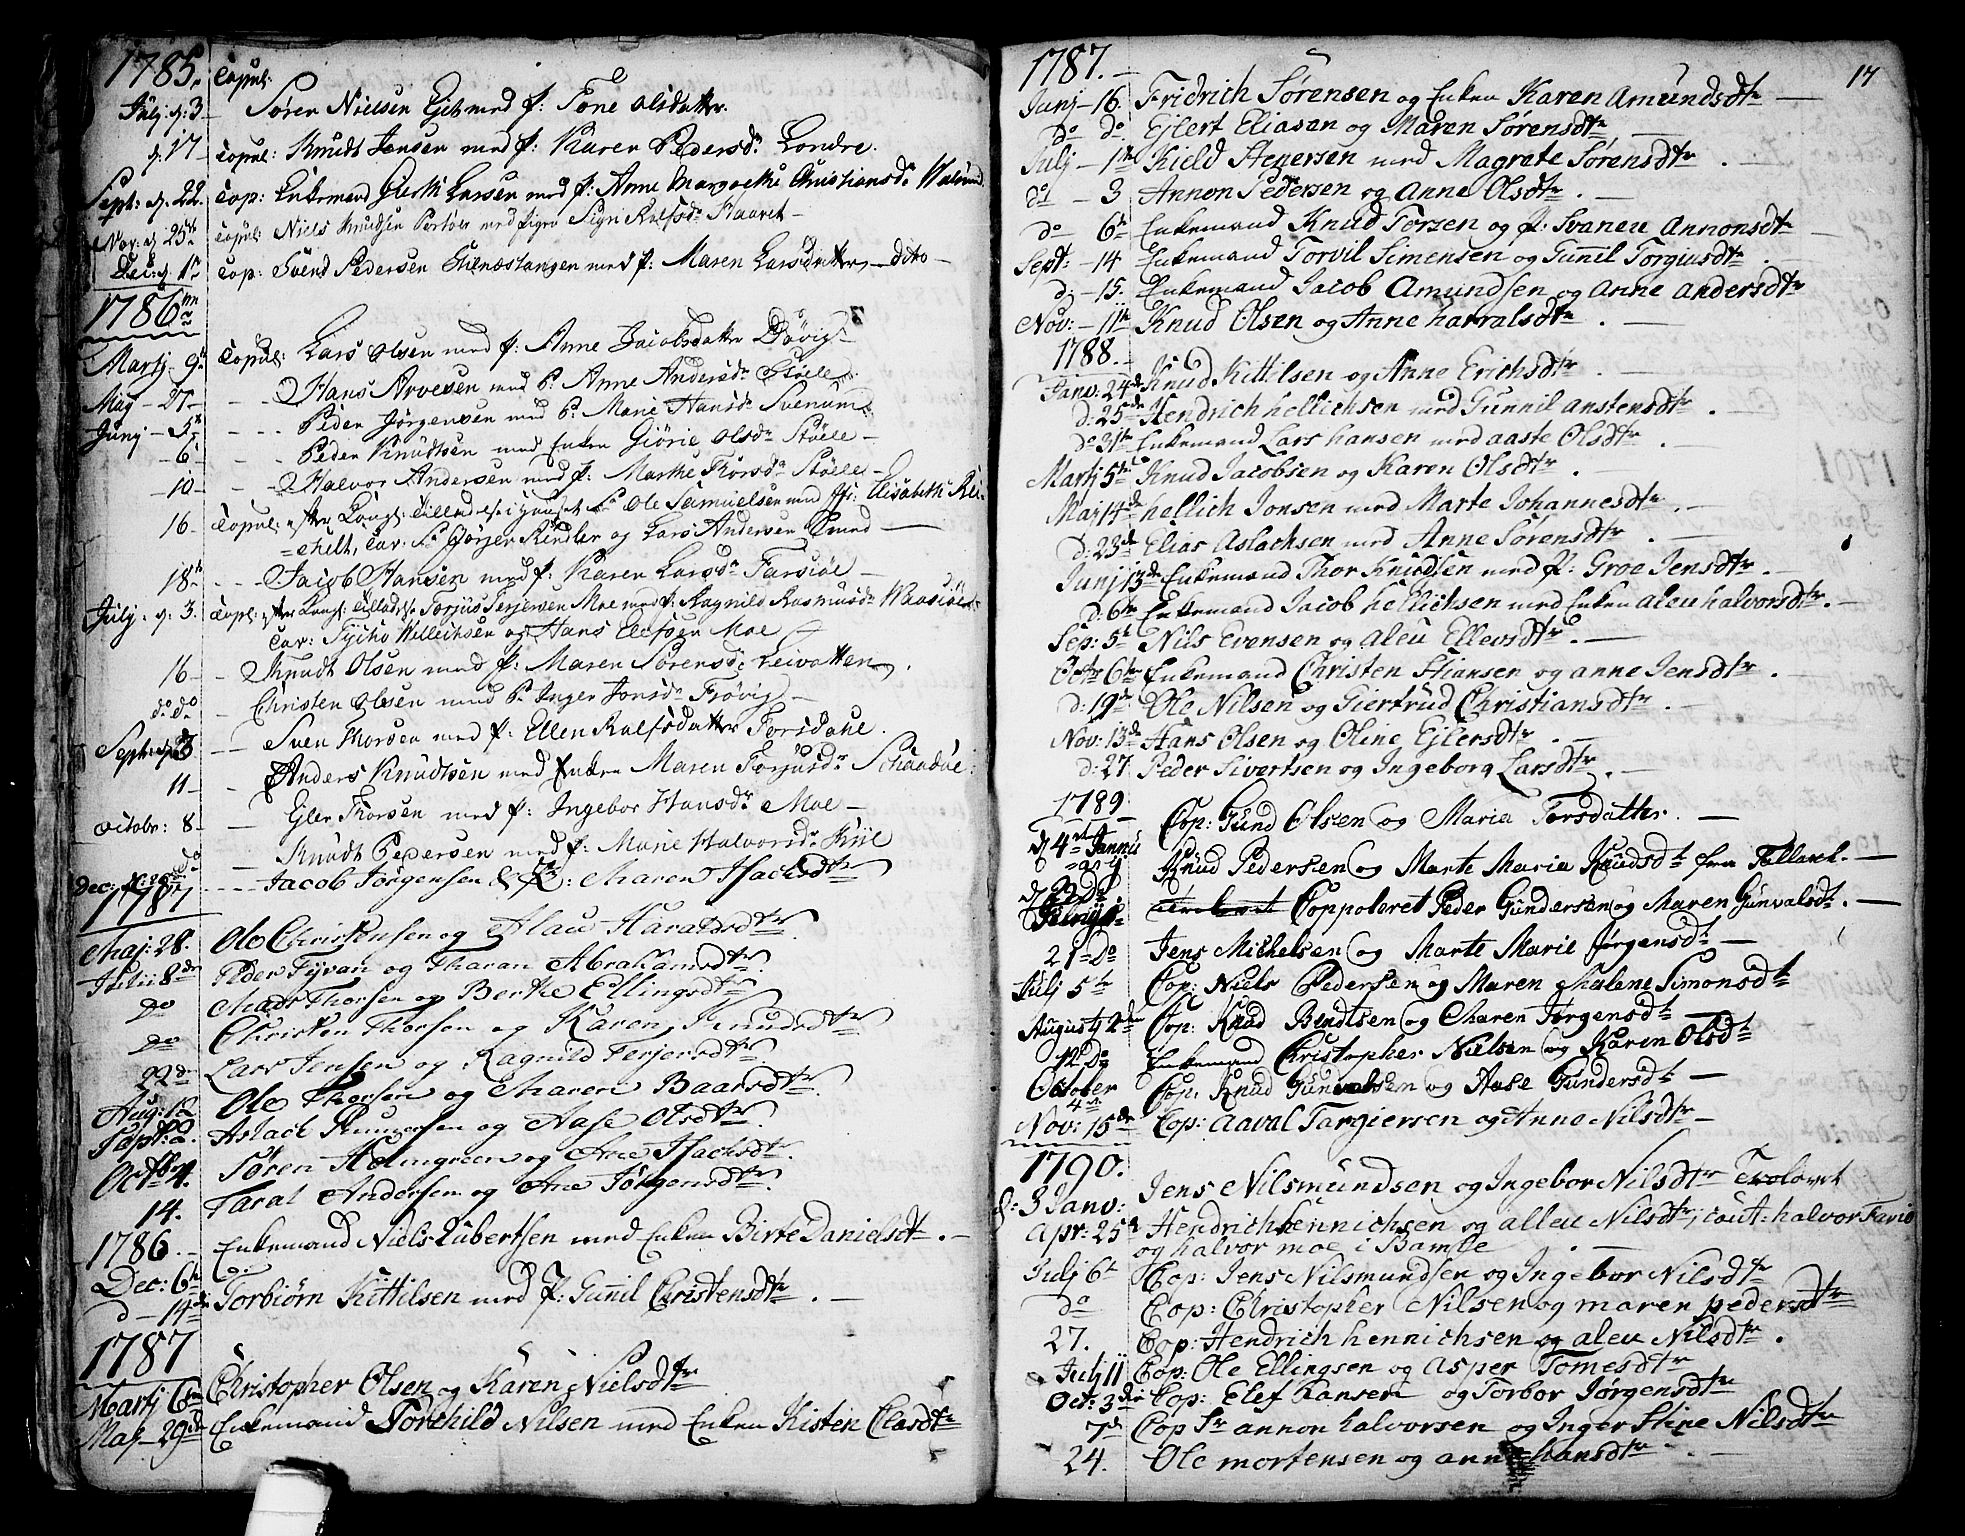 1785. Copul:
Julj. d: 3 – Søren Nielsen Ejet med p: Tone Olsdatter.
d. 17 – Copul: Knudt Jensen med p: Karen Pedersd. Londre.
Sept: d. 22. Cop: Enkemand Giert Larsen med p: Anne Margrethe Christiansd.
Nov: d 25 Copul: Niels Knudsen med Pigen Signi Rolfsd. Haavet –
Dec: d. 1 Cop: Svend Pedersen Steenestangen med p: Maren Larsdatter – dito –
1786
Martj. 9 Copul: Lars Olsen med p: Anne Jacobsdatter Døvig –
Maj – 27 – Hans Arvesen med P. Anne Andersd. Støele
Junj – 5 – Peder Jørgensen med P. Marie Hansd. Svenum
– 6 – Peder Knudtsen med Enken Giørie Olsd. Støele –
– 10 – Halvor Andersen med p: Marthe Thorsd. Støele –
16 – Copul: efter Kongl: Tilladelse i Huuset Sr Ole Samuelsen med Jfr: Elisabeth Rei-
=chelt, Cav: Sr Jørjen Rindler og Lars Andersen Smed –
18 – Jacob Hansen med p. Karen Larsd. Farsiøe –
Julj. d. 3. Copl: efter Kongl: Tilladelse Torjus Terjersen Moe med p. Ragnild Rasmusd.
Cav: Tycho Wellechsen og Hans Elefsen Moe
16 – Knudt Olsen med p: Maren Sørensd: Leivatten.
do do – Christen Olsen med P. Inger Jonsd. Trøvig –
Sept: d. 3 – Sven Thorsen med p: Ellen Rolfsdatter Forsdahl.
11 – Anders Knudtsen med Enken Maren Torjusd.
Octobr: 8 – Ejler Thorsen med p. Ingebor Hansd. Moe –
do – Knudt Pedersen med p. Marie Halvorsd. Kiil
Dec: – Jacob Jørgensen & p: Maren Isachsdtr
1787
Maj: 28. Ole Christensen og Alau Haraldsdtr
8de Peder Fyran og Tharan Abrahamsdtr.
do Mads Thorsen og Berthe Ellingsdtr
do Christen Thorsen og Karen Knudsdtr
22de Lars Jensen og Ragnild Terjersdtr.
Aug: 12 Ole Thorsen og Maren Baarsdtr.
Sept: 2. Aslack Runnersen og Aase Olsdtr
Octbr 4. Søren Holmgreen og Ane Isachsdtr.
14. Taral Andersen og Ane Jørgensdtr.
1786. – Enkemand Niels Lübertsen med Enken Birte Danielsdtr. –
Dec: 6
d – 14de Torbiørn Kittilsen med p. Gunil Christensdtr. –
1787
Martj 6 Christopher Olsen og Karen Nielsdtr
Maj – 29de Enkemand Torchild Nilsen med Enken Kisten Clasdtr
17
1787. –
Junj – 16. Fridrich Sørensen og Enken Karen Amundsdtr –
do do Ejlert Eliasen og Maren Sørensdtr –
Julj – 1te Kield Stenersen med Magrete Sørensdtr. –
do – 3 Annon Pedersen og Anne Olsdtr. –
do 6te Enkemand Knud Torsen og p. Svaneu Annonsdtr –
Sept: – 14 Enkemand Torvil Simensen og Tunil Torgiusdtr. –
d: – 15. Enkemand Jacob Amundsen og Anne Andersdtr
Nov: – 11te Knud Olsen og Anne harralsdtr. –
1788. –
Janv: 24de Knud Kittilsen og Anne Erichsdtr. –
d: 25de Hendrich hellichsen med Gunnil anstensdtr. –
do 31te Enkemand Lars hansen med aaste Olsdtr. –
Martj 5te Knud Jacobsen og Karen Olsdtr. –
Maj 14de hellich Jonsen med Marte Johannesdtr. –
d: 23de Elias Aslachsen med Anne Sørensdtr. –
Junj 13de Enkemand Thor Knudsen med p: Groe Jensdtr. –
d: 6te Enkemand Jacob hellichsen med Enken aleu halvorsdtr. –
Sep: 5t Nils Evensen og aleu Ellevsdtr. –
Octr 6te Enkemand Christen Stiansen og anne Jensdtr. –
d: 19de Ole Nilsen og Giertrud Christiansdtr. –
Nov: 13de Hans Olsen og Oline Ejlersdtr. –
d: 27 Peder Sivertsen og Ingeborg Larsdtr. –
1789
d 4 Januar Cop: Gund Olsen og Maria Torsdatter. –
Knud Pedersen og Marte Maria Knudsdt fra Tallarek. –
Coppoleret Peder Gundersen og Maren Gunvalsdt. –
21 Do Jens Michelsen og Marte Marie Jørgensdt –
Julj 5te Cop: Niels Pedersen og Maren Malene Simonsdt
Augustj 2den Cop: Knud Bendtsen og Maren Jørgensdt –
12 Do Enkemand Christopher Nielsen og Karen Olsdt
October 4 Cop: Knud Gunvalsen og Aase Gundersdt –
Nov: 15de Cop: Aaval Targiersen og Anne Nilsdtr –
1790.
d: 3 Janv: Jens Nilsmundsen og Ingebor Nilsdtr Trolovet
Apr: 25 Hendrich hennichsen og alleu Nilsdtr, Caut: halvor Fario
og halvor moe i Bamle –
Julj 6t Cop: Jens Nilsmundsen og Ingebor Nilsdtr
do Cop: Christopher Nilsen og maren pedersdtr
27. Cop: Hendrich hennichsen og aleu Nilsdtr.
Julj 11 Cop: Ole Ellingsen og Asper Tomesdtr
Oct: 3de Cop: Elef Hansen og Torbor Jørgensdtr
7d Cop Sr annon halvorsen og Inger Stine Nilsdtr
24. Ole mortensen og anne hansdtr –